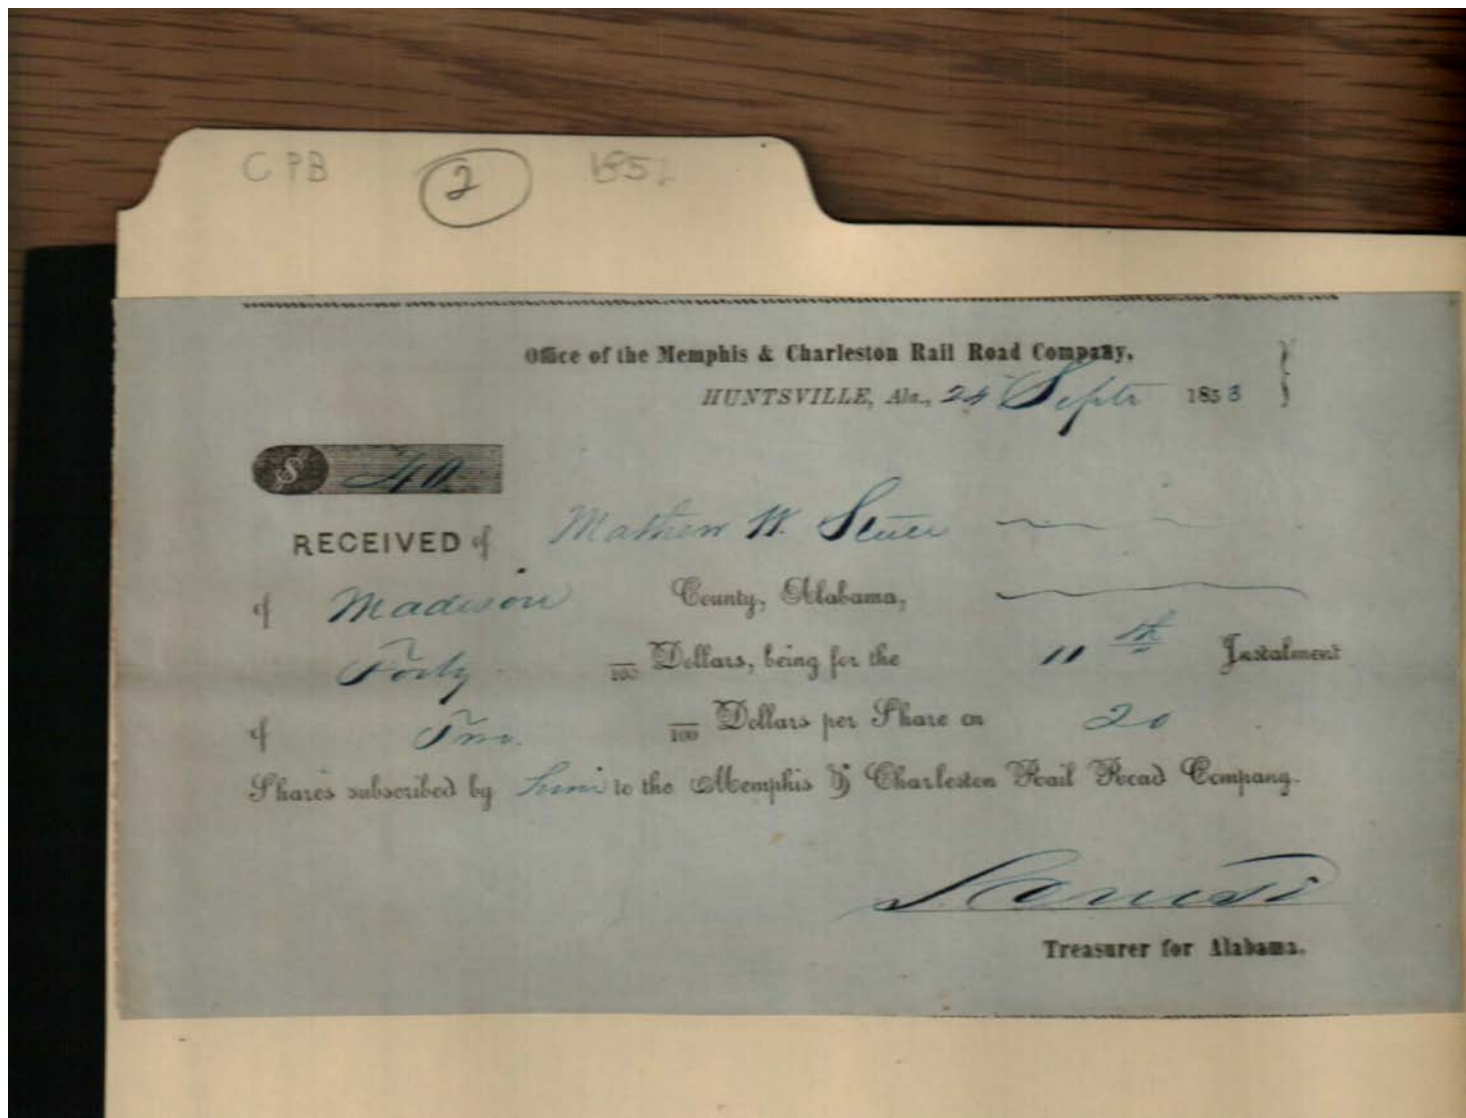 CPB 2 185
Office of the Memphis & Charleston Rail Road Company,
HUNTSVILLE, Ala., 24 Septr 1853
$ 40
RECEIVED of Mathew W. Steele
of Madison County, Alabama,
Forty /100 Dollars, being for the 11th Instalment
of Two /100 Dollars per Share on 20
Shares subscribed by him to the Memphis & Charleston Rail Road Company.
Treasurer for Alabama.